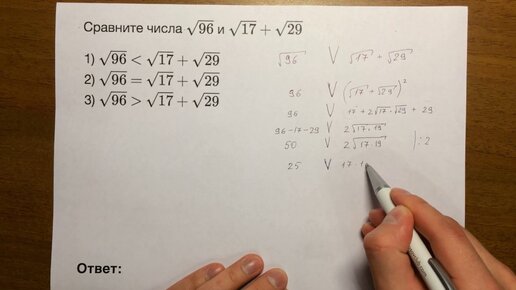 Сравните числа √96 и √17 + √29
1) √96 < √17 + √29
2) √96 = √17 + √29
3) √96 > √17 + √29
√96 V √17 + √29
96 V (√17 + √29)²
96 V 17 + 2√17 · √29 + 29
96-17-29 V 2√17 · 19
50 V 2√17 · 19 ) : 2
25 V 17 · 1
Ответ: